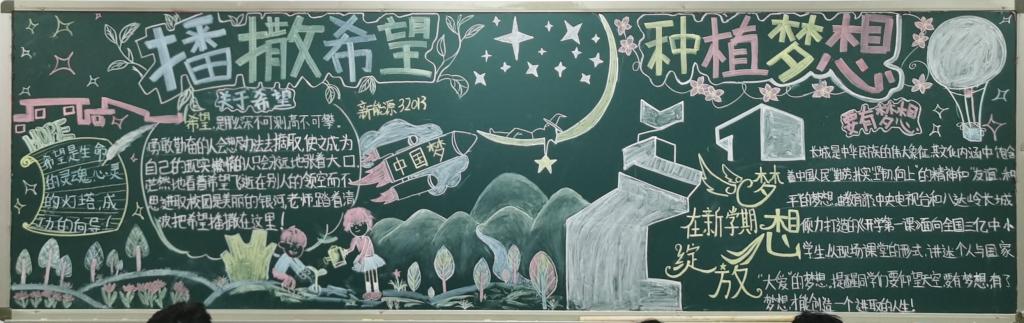 播撒希望
种植梦想
关于希望
新能源32013
希望,是那么深不可测,高不可攀。
勇敢勤奋的人会想方设法去摘取,使文成为
自己的现实,懒惰的人只会永远地张着大口
茫然地看着希望飞逝在别人的领空而不
思进取校园是美丽的银河,老师踏着清
波把希望播撒在这里!
HOPE
希望是生命
的灵魂,心灵
的灯塔,成
功的向导!
中国梦
在新学期
绽放
梦
想
要有梦想
长城是中华民族的伟大象征,其文化内涵中
着中国人民勤劳朴实、坚韧向上的精神和友谊、和
平的梦想。
中央电视台和八达岭长城
倾力打造的《开学第一课》面向全国三亿中小
学生以现场课堂的形式,讲述个人与国家
“大爱”的梦想,提醒同学们要仰望天空,要有梦想,有了
梦想,才能创造一个进取的人生!